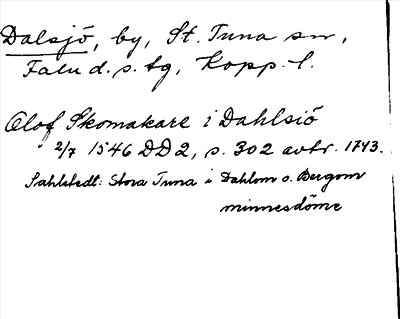 Dalsjö, by, St. Tuna sn,
Falu d. s. tg, Kopp. l.
Olof Skomakare i Dahlsiö
2/7 1546 DD2, s. 302 avtr. 1743.
Sahlstedt: Stora Tuna i Dahlom o. Bergom
minnesdöme